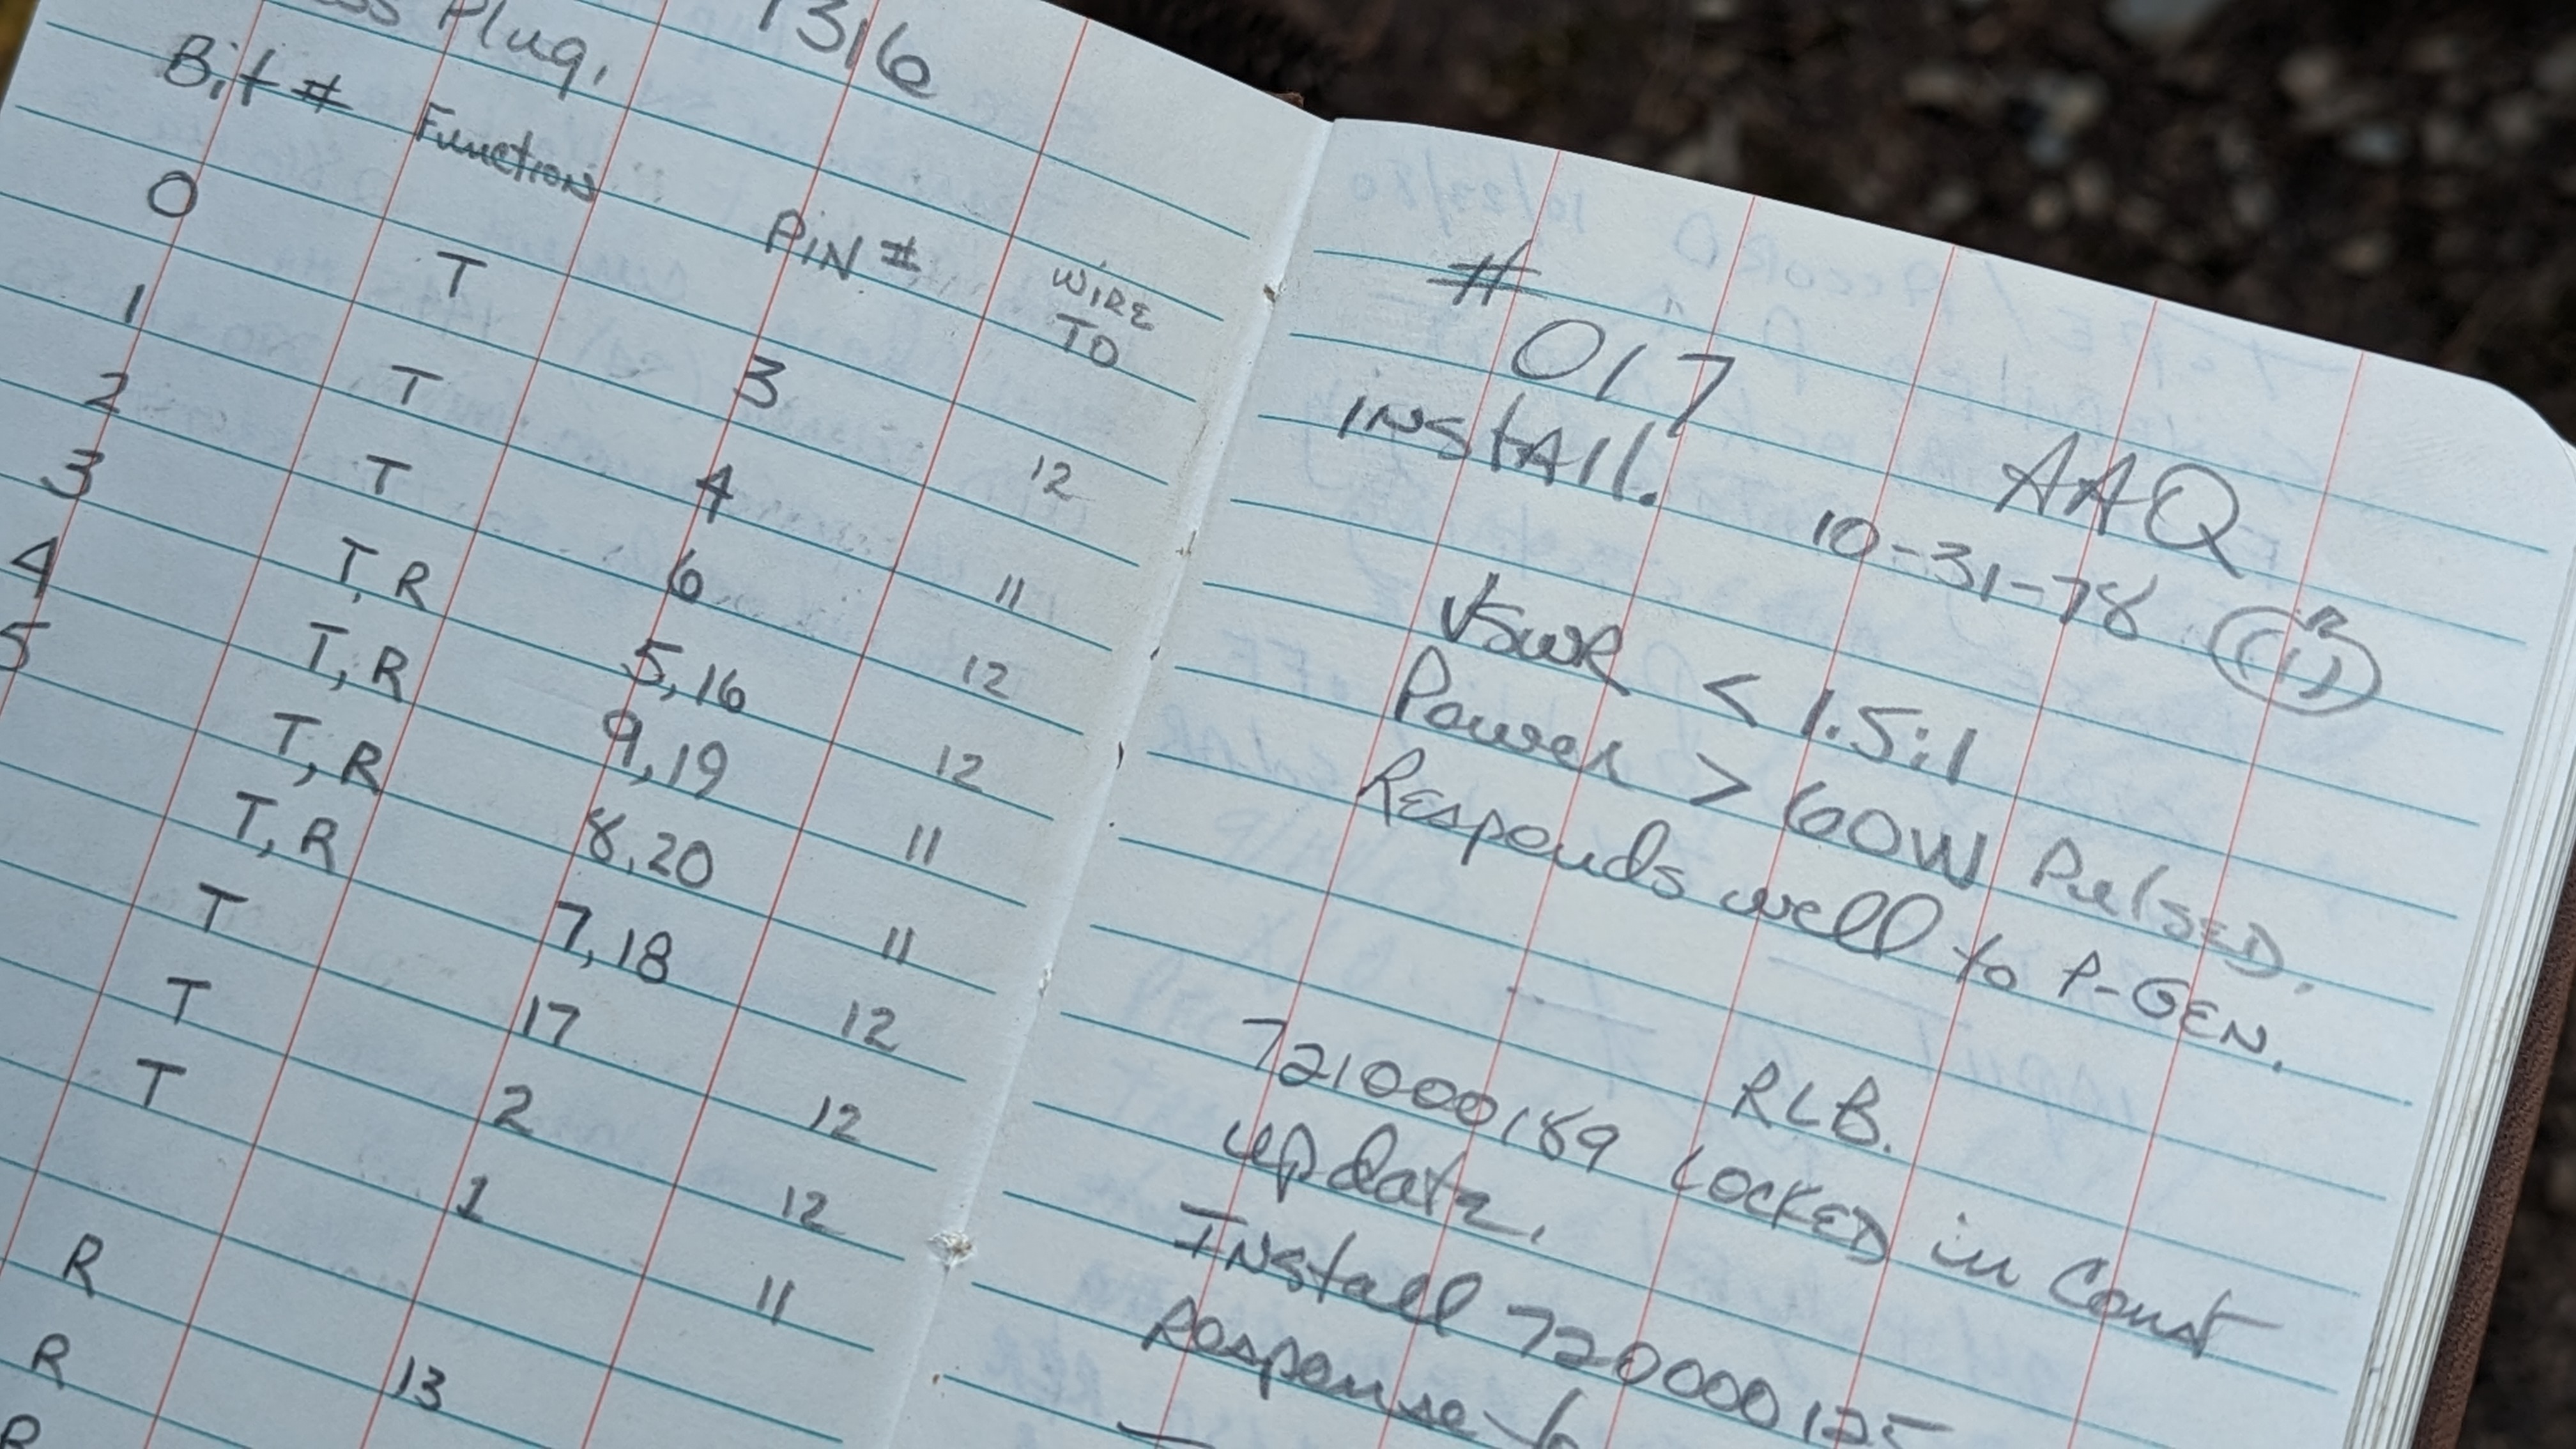 Plug, 1316
Bit # Function PIN # WIRE TO
0 T 3 12
1 T 4 11
2 T 6 12
3 T, R 5, 16 12
4 T, R 9, 19 11
5 T, R 8, 20 11
T, R 7, 18 12
T 17 12
T 2 12
T 1 11
R 13
R
R
# 017 AAQ
INSTAll. 10-31-78
VSWR < 1.5:1
Power > 60W PulsED.
Responds well to P-GEN.
RLB.
721000189 LOCKED in Const
update.
INstall 720000125
Response to